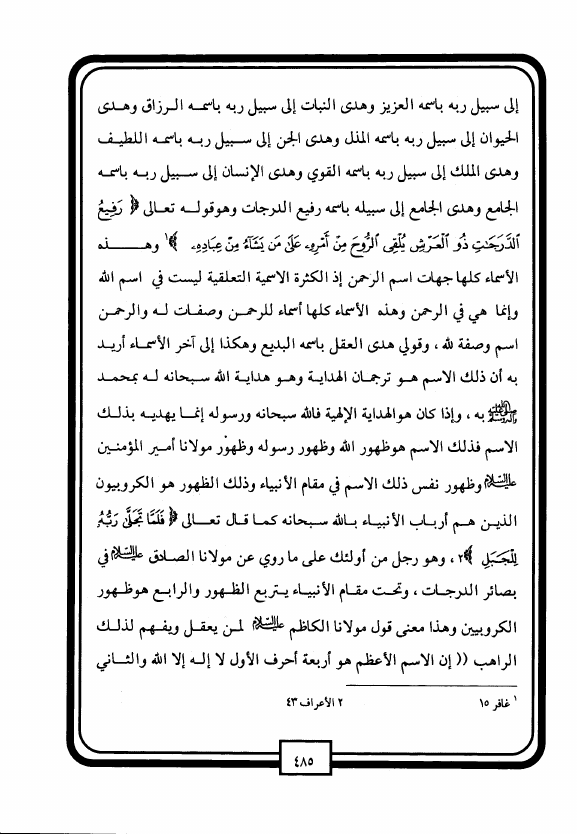 إلى سبيل ربه باسمه العزيز وهدى النبات إلى سبيل ربه باسمه الرزاق وهدى
الحيوان إلى سبيل ربه باسمه المذل وهدى الجن إلى سبيل ربه باسمه اللطيف
وهدى الملك إلى سبيل ربه باسمه القوي وهدى الإنسان إلى سبيل ربه باسمه
الجامع وهدى الجامع إلى سبيله باسمه رفيع الدرجات وهوقوله تعالى ﴿ رَفِيعُ
ٱلدَّرَجَٰتِ ذُو ٱلْعَرْشِ يُلْقِى ٱلرُّوحَ مِنْ أَمْرِهِۦ عَلَىٰ مَن يَشَآءُ مِنْ عِبَادِهِۦ ﴾١ وهذه
الأسماء كلها جهات اسم الرحمن إذ الكثرة الاسمية التعلقية ليست في اسم الله
وإنما هي في الرحمن وهذه الأسماء كلها أسماء للرحمن وصفات له والرحمن
اسم وصفة لله ، وقولي هدى العقل باسمه البديع وهكذا إلى آخر الأسماء أريد
به أن ذلك الاسم هو ترجمان الهداية وهو هداية الله سبحانه له بمحمد
ﷺ به ، وإذا كان هوالهداية الإلهية فالله سبحانه ورسوله إنما يهديه بذلك
الاسم فذلك الاسم هوظهور الله وظهور رسوله وظهور مولانا أمير المؤمنين
عليه السلام وظهور نفس ذلك الاسم في مقام الأنبياء وذلك الظهور هو الكروبيون
الذين هم أرباب الأنبياء بالله سبحانه كما قال تعالى ﴿ فَلَمَّا تَجَلَّىٰ رَبُّهُۥ
لِلْجَبَلِ ﴾٢ ، وهو رجل من أولئك على ما روي عن مولانا الصادق عليه السلام في
بصائر الدرجات ، وتحت مقام الأنبياء يتربع الظهور والرابع هوظهور
الكروبيين وهذا معنى قول مولانا الكاظم عليه السلام لمن يعقل ويفهم لذلك
الراهب (( إن الاسم الأعظم هو أربعة أحرف الأول لا إله إلا الله والثاني
١ غافر ١٥ ٢ الأعراف ٤٣
٤٨٥